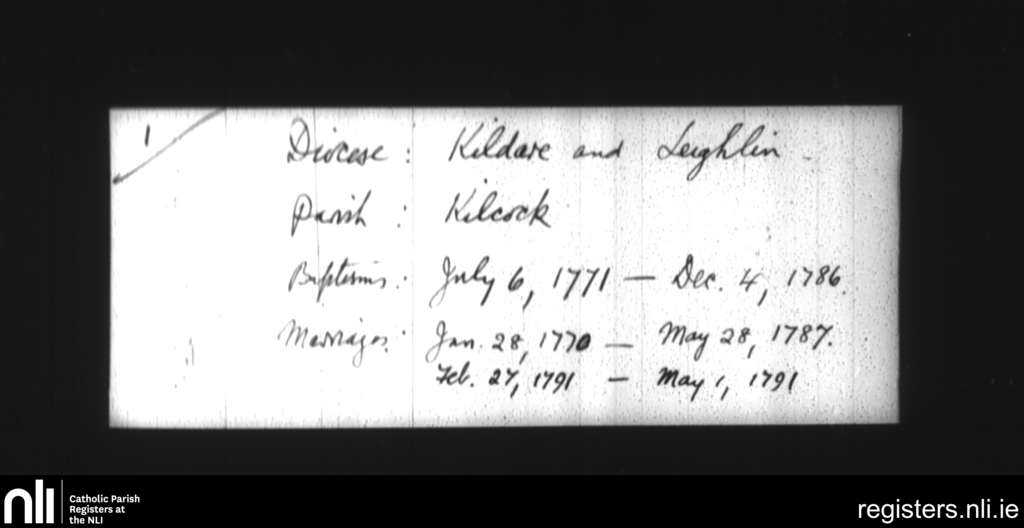 1
Diocese : Kildare and Leighlin
Parish : Kilcock
Baptisms : July 6, 1771 — Dec. 4, 1786.
Marriages : Jan. 28, 1770 — May 28, 1787.
Feb. 27, 1791 — May 1, 1791
nli
Catholic Parish
Registers at
the NLI
registers.nli.ie